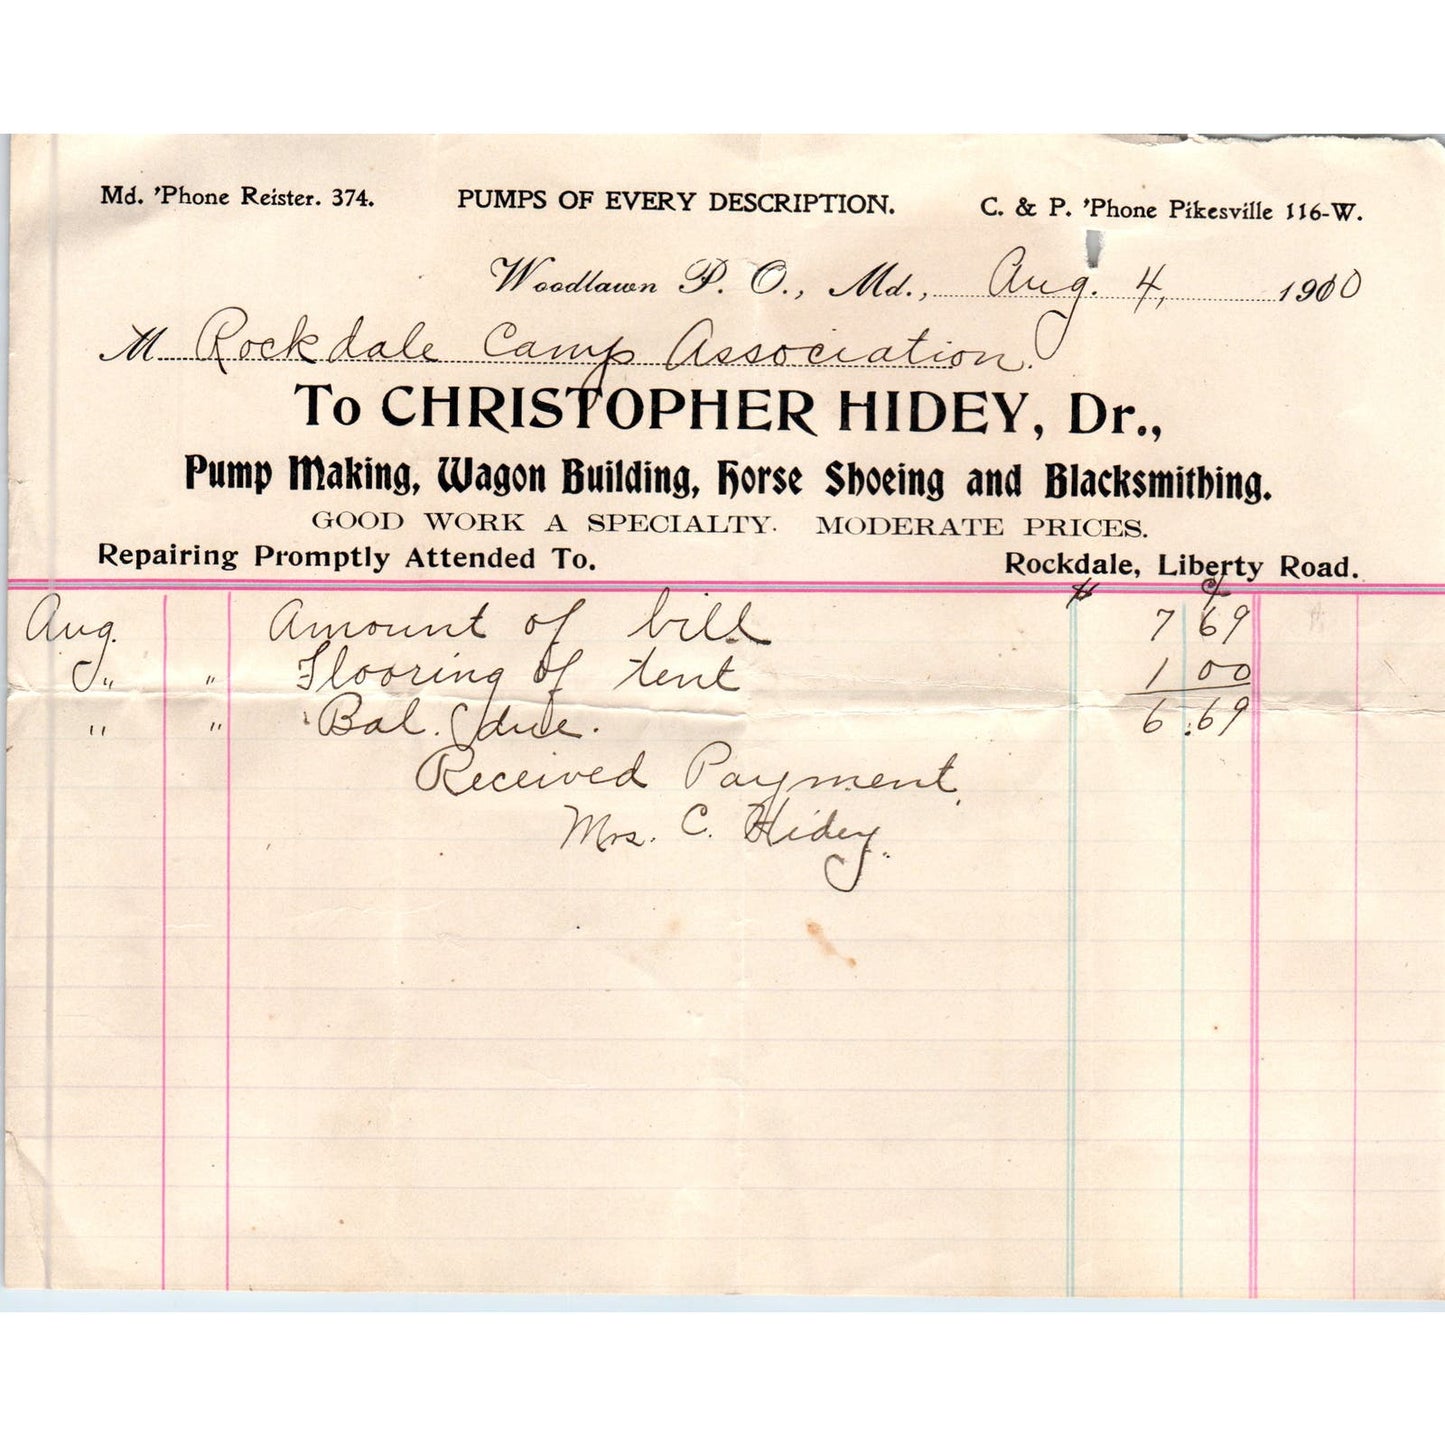 Md. 'Phone Reister. 374. PUMPS OF EVERY DESCRIPTION. C. & P. 'Phone Pikesville 116-W.
Woodlawn P. O., Md., Aug. 4, 1910
M Rockdale Camp Association.
To CHRISTOPHER HIDEY, Dr.,
Pump Making, Wagon Building, Horse Shoeing and Blacksmithing.
GOOD WORK A SPECIALTY. MODERATE PRICES.
Repairing Promptly Attended To. Rockdale, Liberty Road.
$ ¢
Aug. Amount of bill 7 69
" " Flooring of tent 1 00
" " Bal. due. 6.69
Received Payment,
Mrs. C. Hidey.